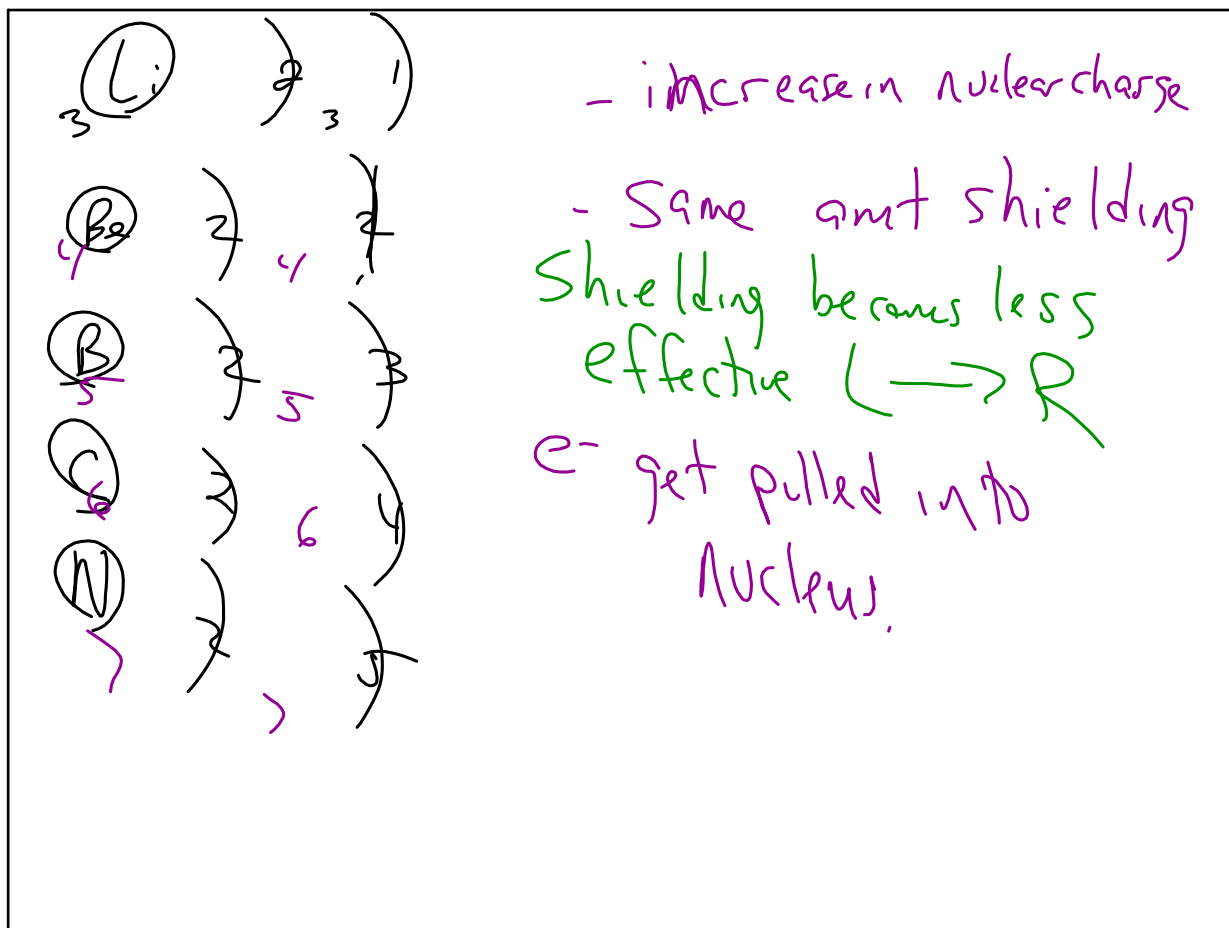 Li 2) 1)
3 3
Be 2) 2)
4 4
B 2) 3)
5 5
C 2) 4)
6 6
N 2) 5)
7 7
- increase in nuclear charge
- Same amt shielding
Shielding becomes less
effective L → R
e- get pulled into
nucleus.